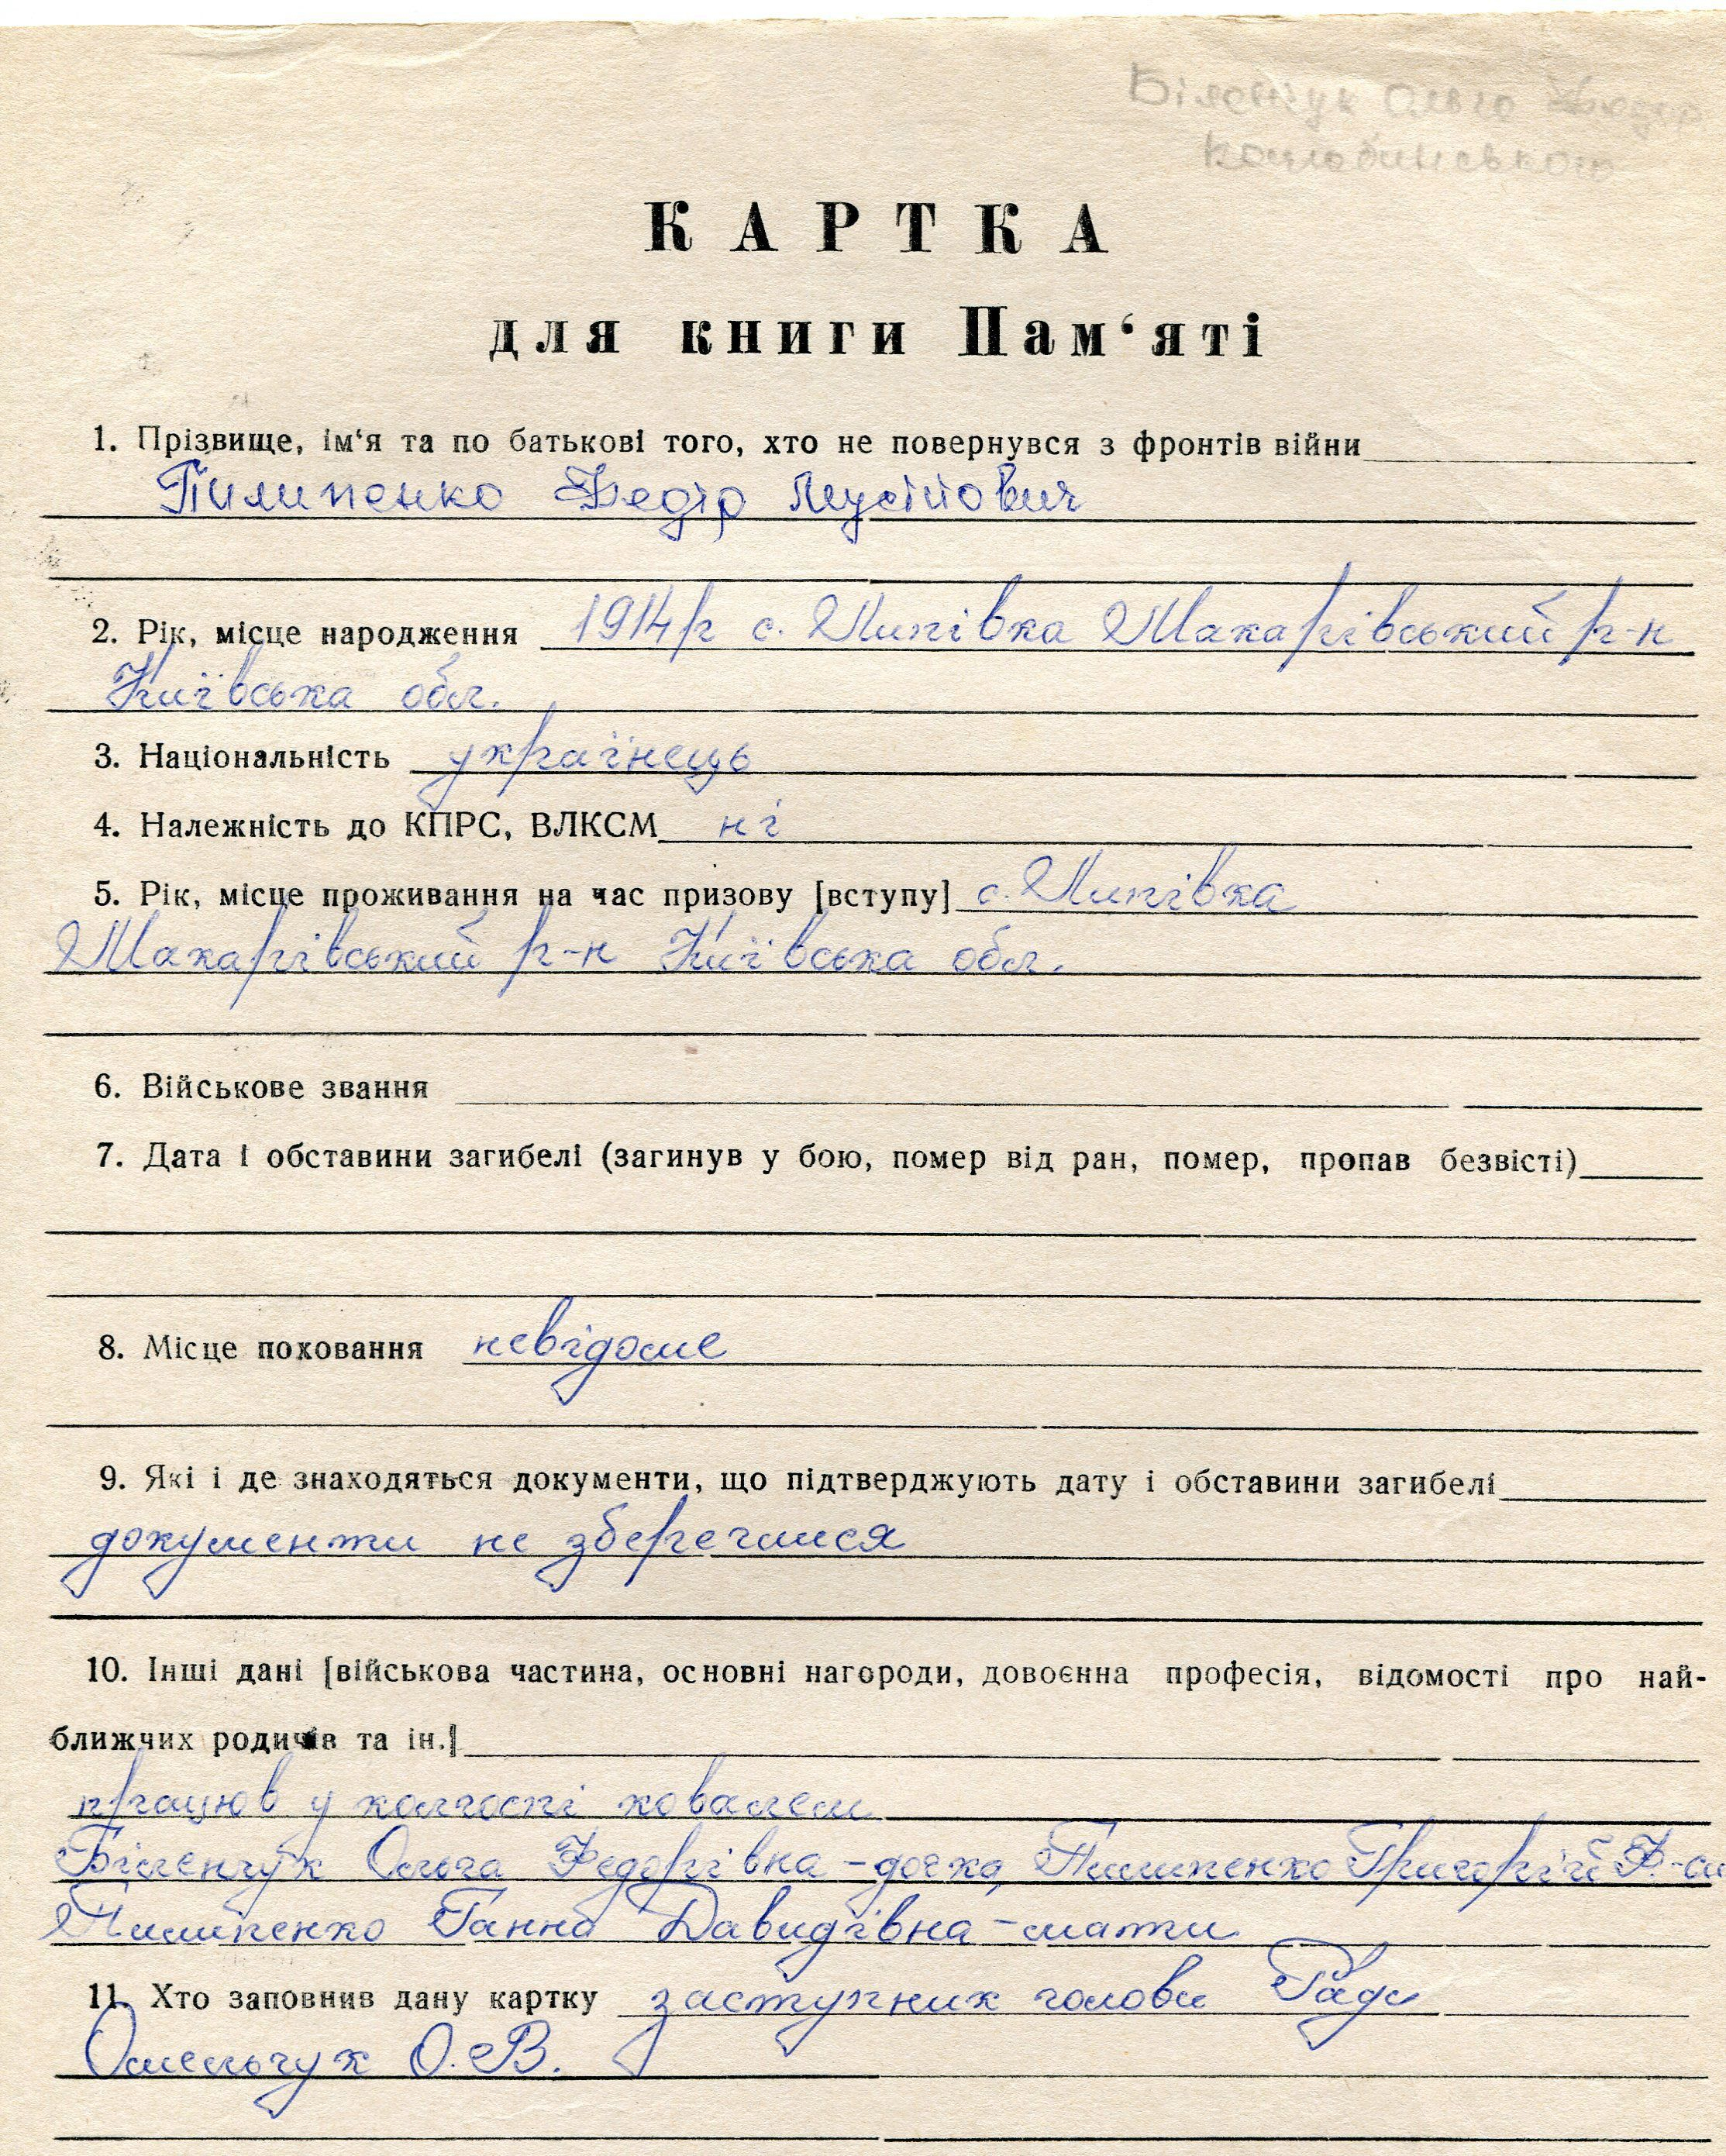 Біленчук Ольга Федор
Коцюбинського
КАРТКА
для книги Пам‘яті
1. Прізвище, ім‘я та по батькові того, хто не повернувся з фронтів війни
Пилипенко Федір Мусійович
2. Рік, місце народження 1914р с. Липівка Макарівський р-н
Київська обл.
3. Національність українець
4. Належність до КПРС, ВЛКСМ ні
5. Рік, місце проживання на час призову [вступу] с. Липівка
Макарівський р-н Київська обл.
6. Військове звання
7. Дата і обставини загибелі (загинув у бою, помер від ран, помер, пропав безвісті)
8. Місце поховання невідоме
9. Які і де знаходяться документи, що підтверджують дату і обставини загибелі
документи не збереглися
10. Інші дані [військова частина, основні нагороди, довоєнна професія, відомості про най-
ближчих родичів та ін.]
працюв у колгоспі ковалем
Біленчук Ольга Федорівна - дочка, Пилипенко Григорій Ф-си
Пилипенко Ганна Давидівна - мати
11. Хто заповнив дану картку заступник голови Ради
Омельчук О.В.